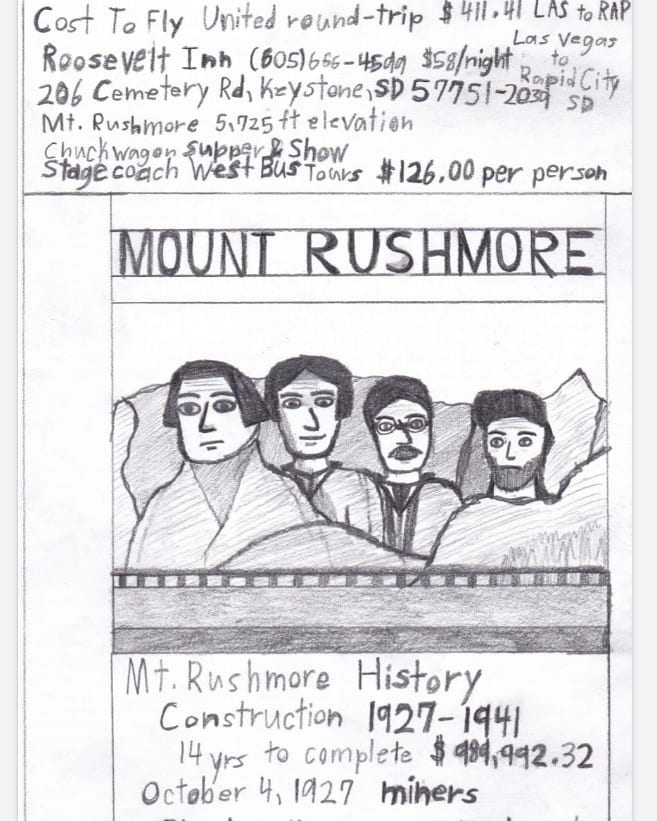 Cost To Fly United round-trip $411.41 LAS to RAP
Las Vegas
to
Rapid City
SD
Roosevelt Inn (605)666-4599 $58/night
206 Cemetery Rd, Keystone, SD 57751-2039
Mt. Rushmore 5,725 ft elevation
Chuckwagon Supper & Show
Stagecoach West Bus Tours $126.00 per person
MOUNT RUSHMORE
Mt. Rushmore History
Construction 1927-1941
14 yrs to complete $989,992.32
October 4, 1927 miners